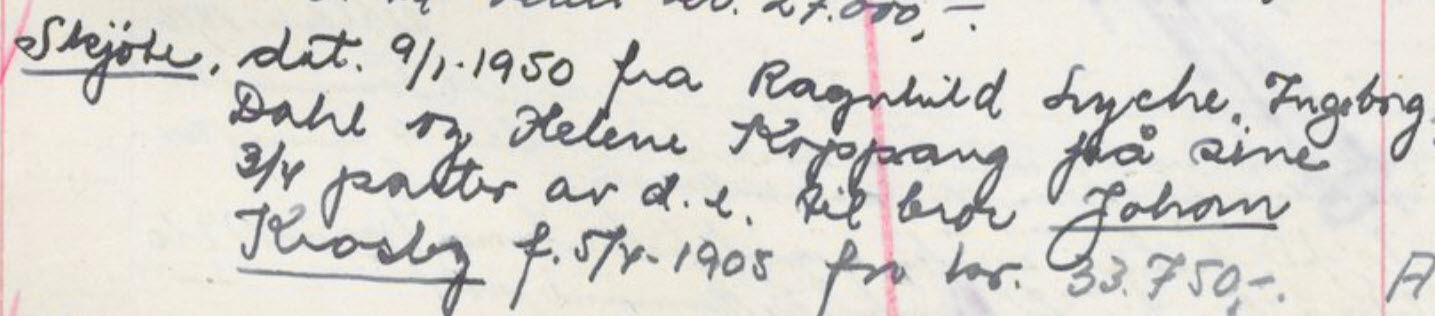 kr. 27.000,-.
Skjöte, dat. 9/1-1950 fra Ragnhild Lyche, Ingeborg
Dahl og Helene Koppang på sine
3/4 parter av d.e. til bror Johan
Krosby f. 5/4-1905 for kr. 33.750,-. A